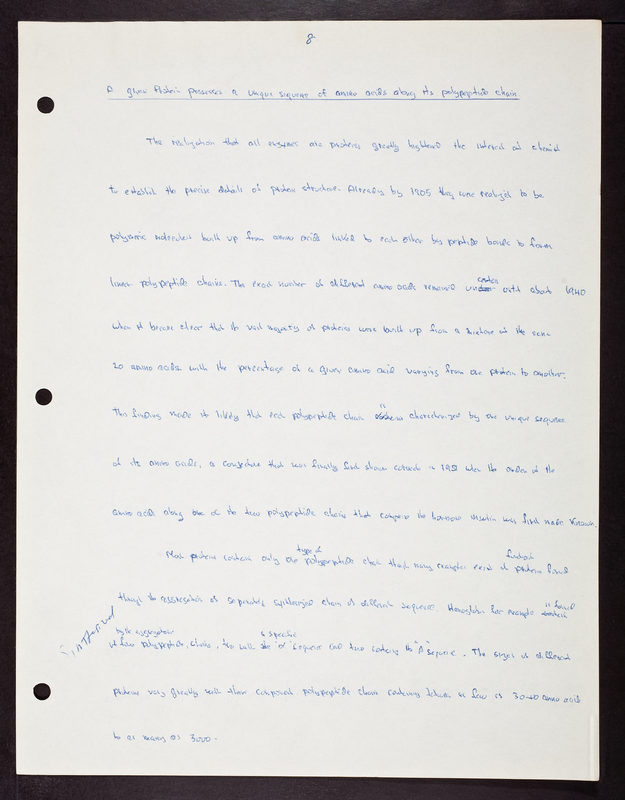 8
A given Protein possesses a unique sequence of amino acids along its polypeptide chain
The realization that all enzymes are proteins greatly hightened the interest of chemist
to establish the precise details of protein structure. Already by 1905 they were realized to be
polymeric molecules built up from amino acids linked to each other by peptide bonds to form
linear polypeptide chains. The exact number of different amino acids remained uncertain until about 1940
when it became clear that the vast majority of proteins were built up from a mixture of the same
20 amino acids with the percentage of a given amino acid varying from one protein to another.
This finding made it likely that each polypeptide chain is characterized by one unique sequence
of its amino acids, a conjecture that was finally first shown correct in 1951 when the order of the
amino acids along one of the two polypeptide chains that comprise the hormone insulin was first made known.
Most proteins contain only one type of polypeptide chain though many examples exist of functional proteins formed
through the aggregation of separately synthesized chains of different sequence. Hemoglobin for example is formed
by the aggregation
of four polypeptide chains, two with a specific "α" sequence and two containing the "β" sequence. The sizes of different
proteins vary greatly with their component polypeptide chains containing between as few as 30-40 amino acids
to as many as 3000.